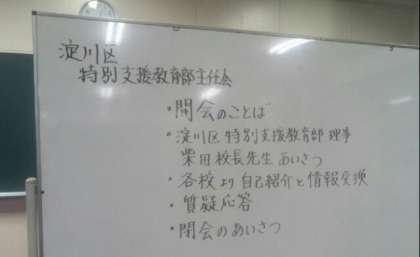 淀川区
特別支援教育部主任会
・開会のことば
・淀川区 特別支援教育部 理事
柴田校長先生 あいさつ
・各校より 自己紹介と情報交換
・質疑応答
・閉会のあいさつ